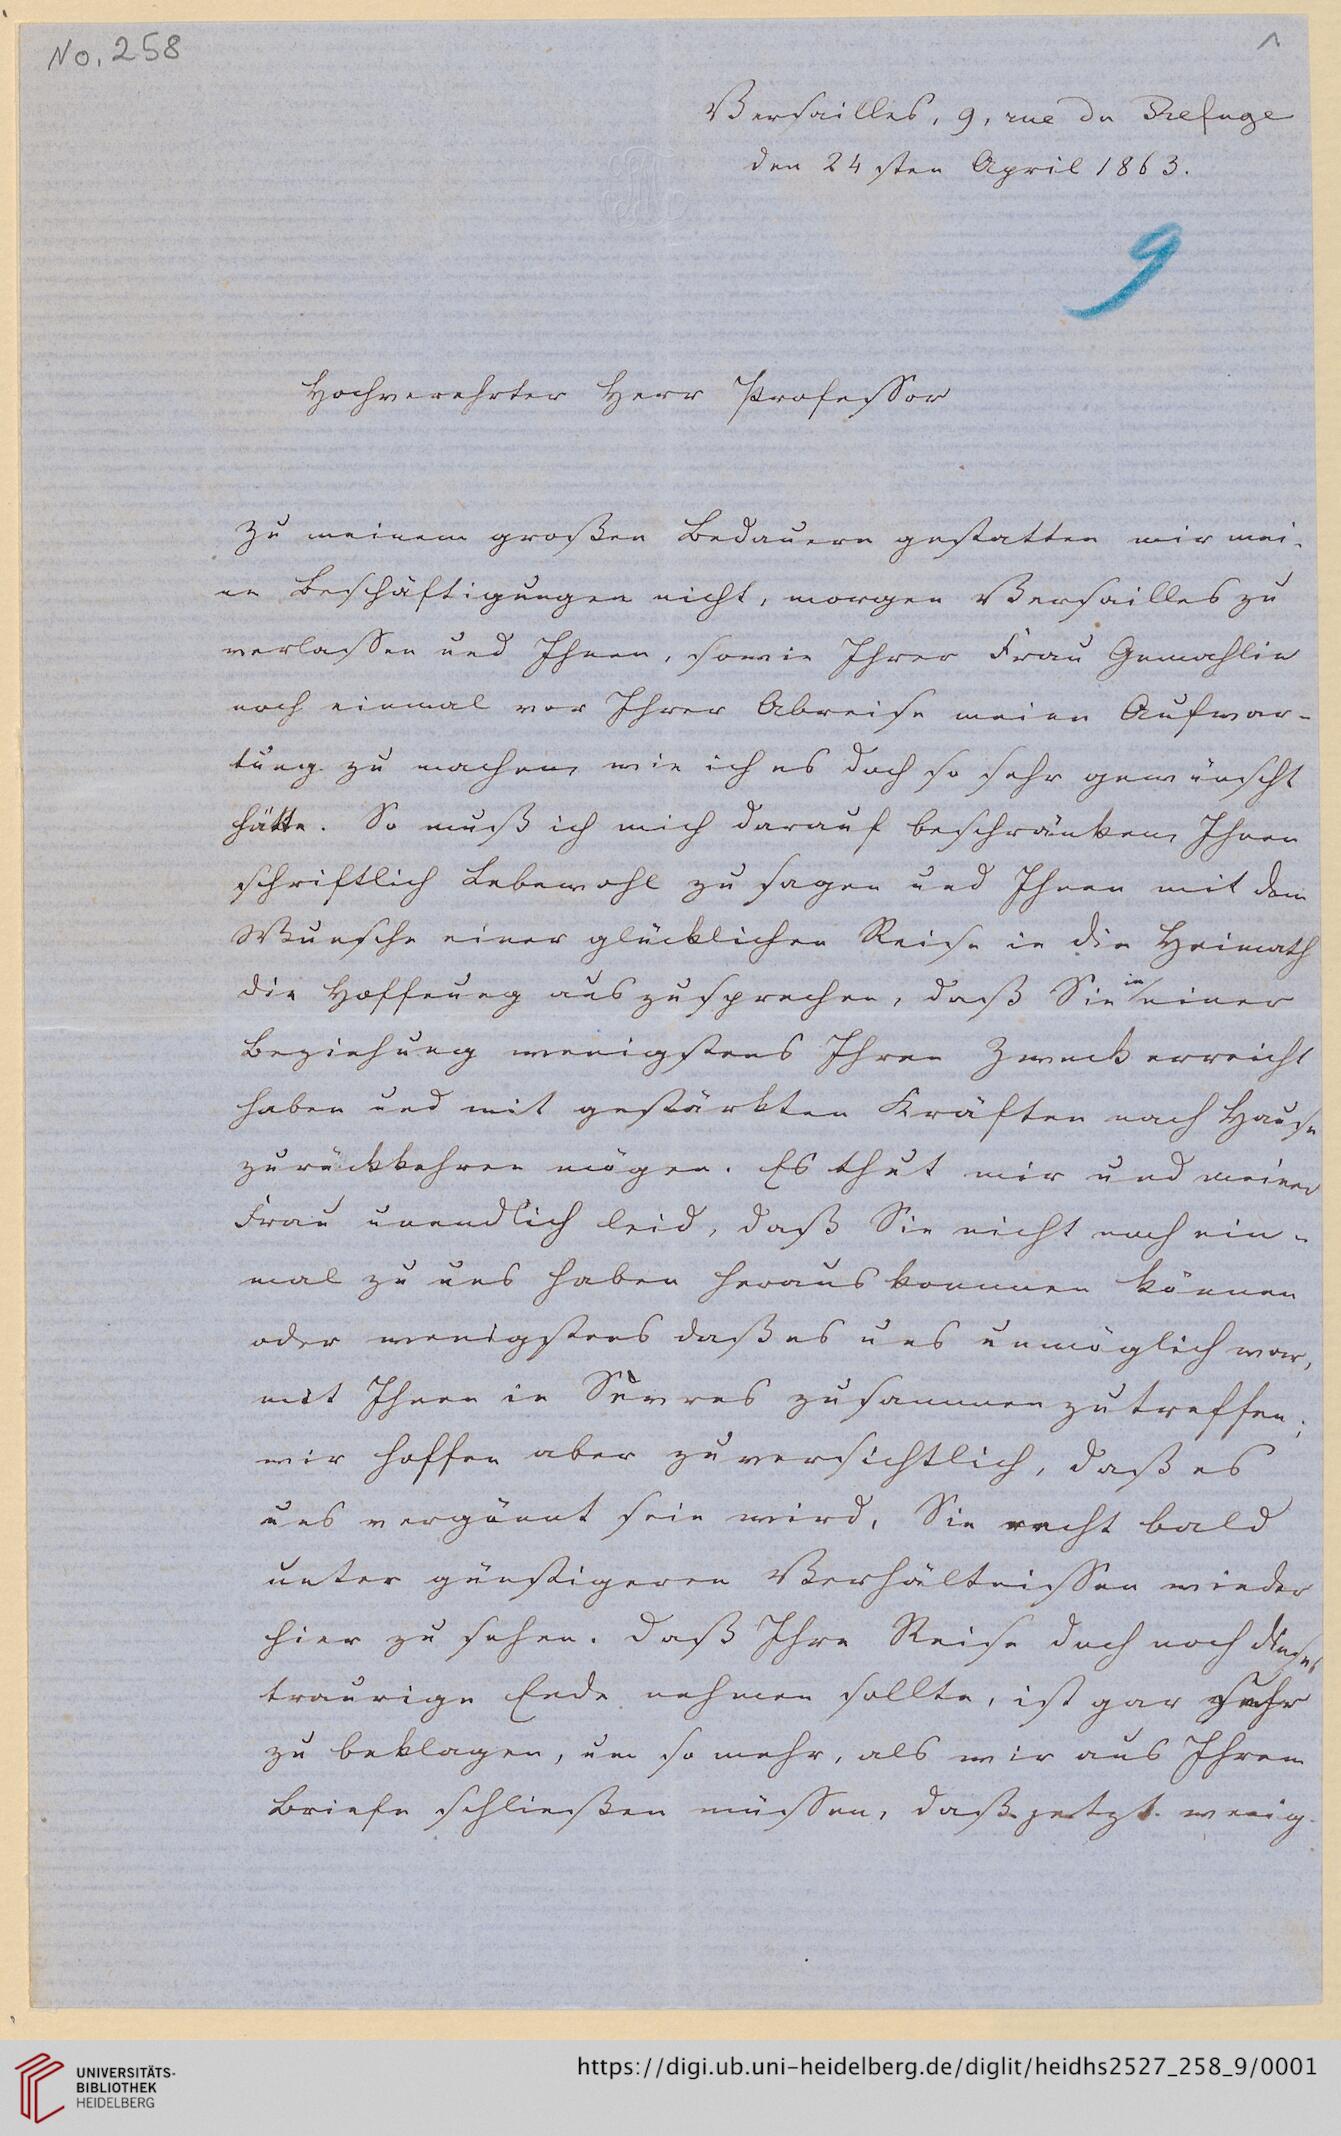 No. 258
1
Versailles, 9, rue du Refuge
den 24sten April 1863.
9
Hochverehrter Herr Professor
Zu meinem großen Bedauern gestatten mir mei-
ne Beschäftigungen nicht, morgen Versailles zu
verlassen und Ihnen, sowie Ihrer Frau Gemahlin
noch einmal vor Ihrer Abreise meine Aufwar-
tung zu machen, wie ich es doch so sehr gewünscht
hätte. So muß ich mich darauf beschränken, Ihnen
schriftlich Lebewohl zu sagen und Ihnen mit dem
Wunsche einer glücklichen Reise in die Heimath
die Hoffnung auszusprechen, daß Sie in einer
Beziehung wenigstens Ihren Zweck erreicht
haben und mit gestärkten Kräften nach Hause
zurückkehren mögen. Es thut mir und meiner
Frau unendlich leid, daß Sie nicht noch ein-
mal zu uns haben herauskommen können
oder wenigstens daß es uns unmöglich war,
mit Ihnen in Sèvres zusammenzutreffen;
wir hoffen aber zuversichtlich, daß es
uns vergönnt sein wird, Sie recht bald
unter günstigeren Verhältnissen wieder
hier zu sehen. Daß Ihre Reise doch noch dieses
traurige Ende nehmen sollte, ist gar sehr
zu beklagen, um so mehr, als wir aus Ihrem
Briefe schließen müssen, daß jetzt wenig
UNIVERSITÄTS-
BIBLIOTHEK
HEIDELBERG
https://digi.ub.uni-heidelberg.de/diglit/heidhs2527_258_9/0001